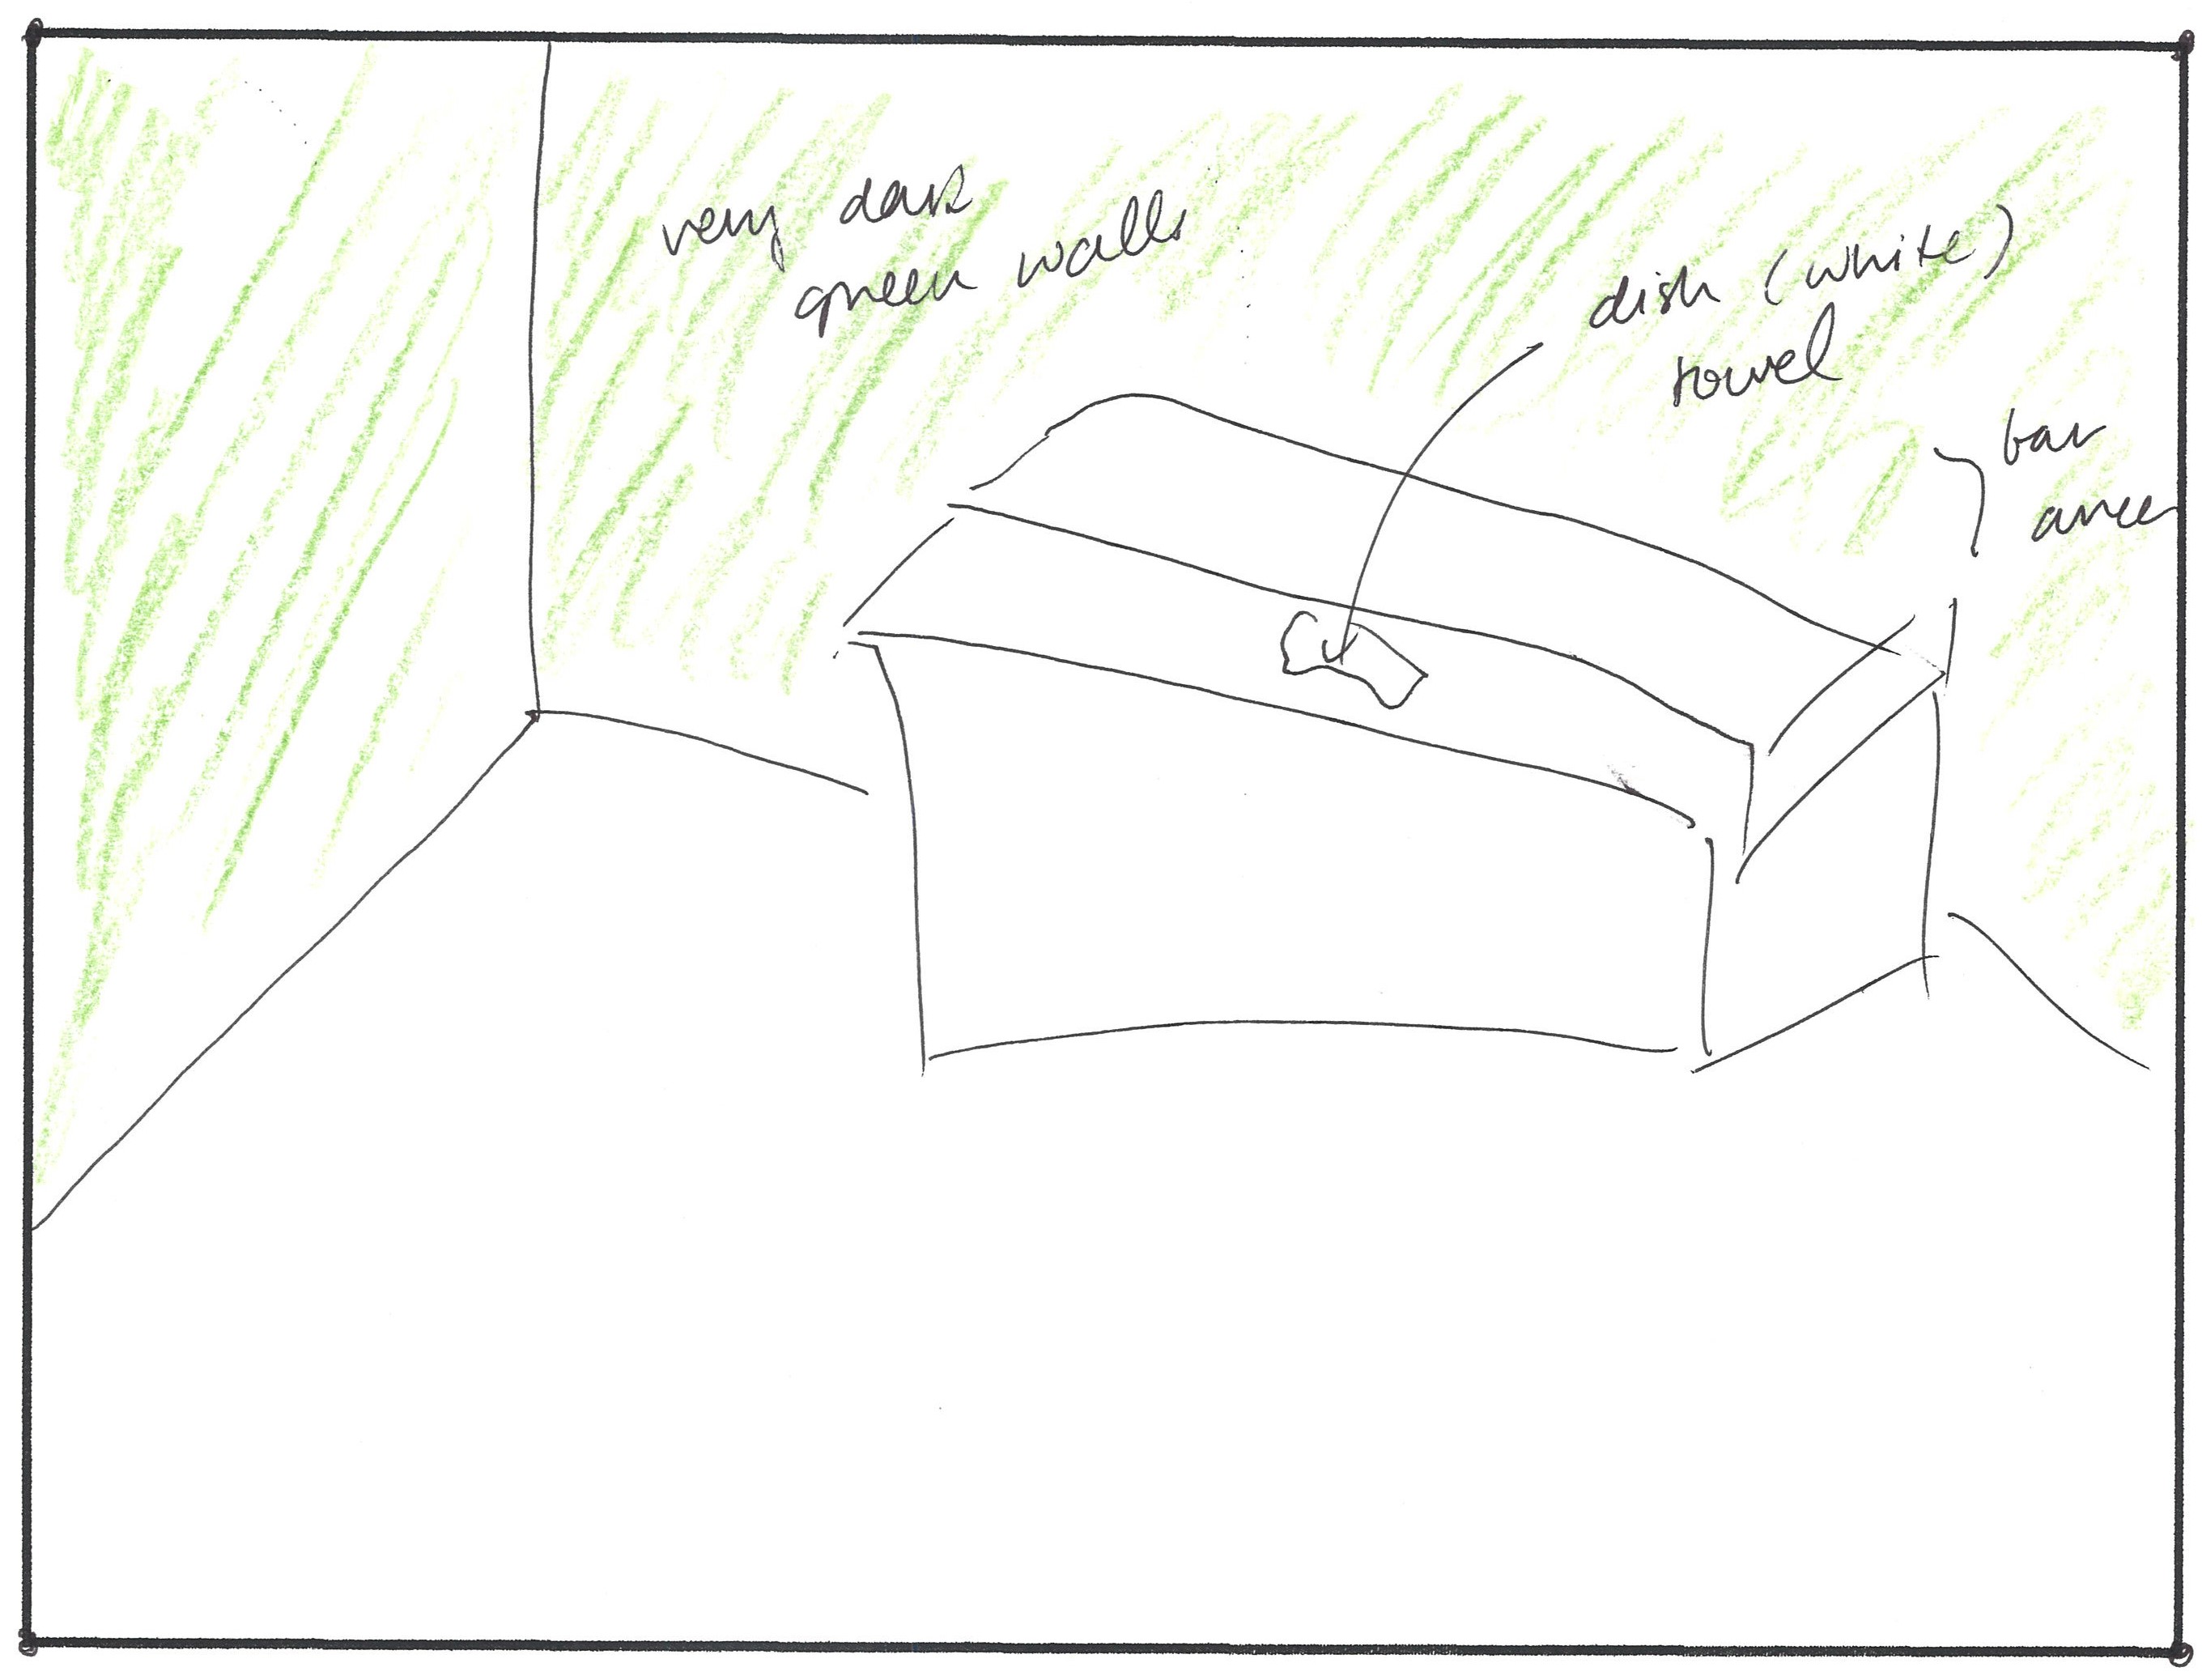 very dark
green walls
dish (white)
towel
bar
area